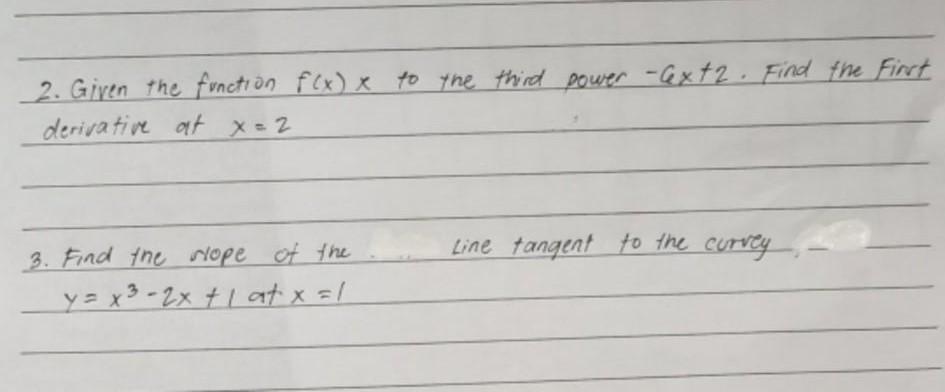 2. Given the function f(x) x to the third power -6x+2. Find the First
derivative at x = 2
3. Find the slope of the Line tangent to the curvey
y = x³ - 2x + 1 at x = 1